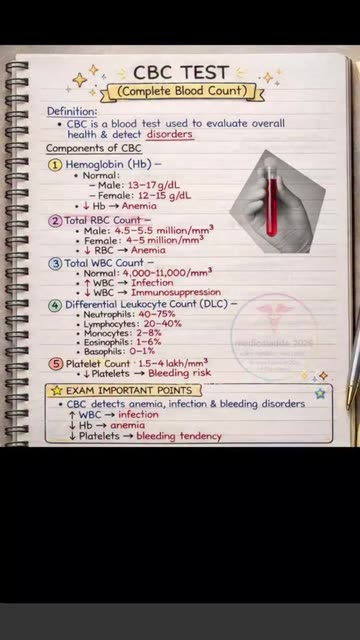 CBC TEST
(Complete Blood Count)
Definition:
• CBC is a blood test used to evaluate overall
health & detect disorders
Components of CBC
1 Hemoglobin (Hb) –
• Normal:
– Male: 13–17 g/dL
– Female: 12–15 g/dL
• ↓ Hb → Anemia
2 Total RBC Count –
• Male: 4.5–5.5 million/mm³
• Female: 4–5 million/mm³
• ↓ RBC → Anemia
3 Total WBC Count –
• Normal: 4,000–11,000/mm³
• ↑ WBC → Infection
• ↓ WBC → Immunosuppression
4 Differential Leukocyte Count (DLC) –
• Neutrophils: 40–75%
• Lymphocytes: 20–40%
• Monocytes: 2–8%
• Eosinophils: 1–6%
• Basophils: 0–1%
5 Platelet Count · 1.5–4 lakh/mm³
• ↓ Platelets → Bleeding risk
EXAM IMPORTANT POINTS
• CBC detects anemia, infection & bleeding disorders
↑ WBC → infection
↓ Hb → anemia
↓ Platelets → bleeding tendency